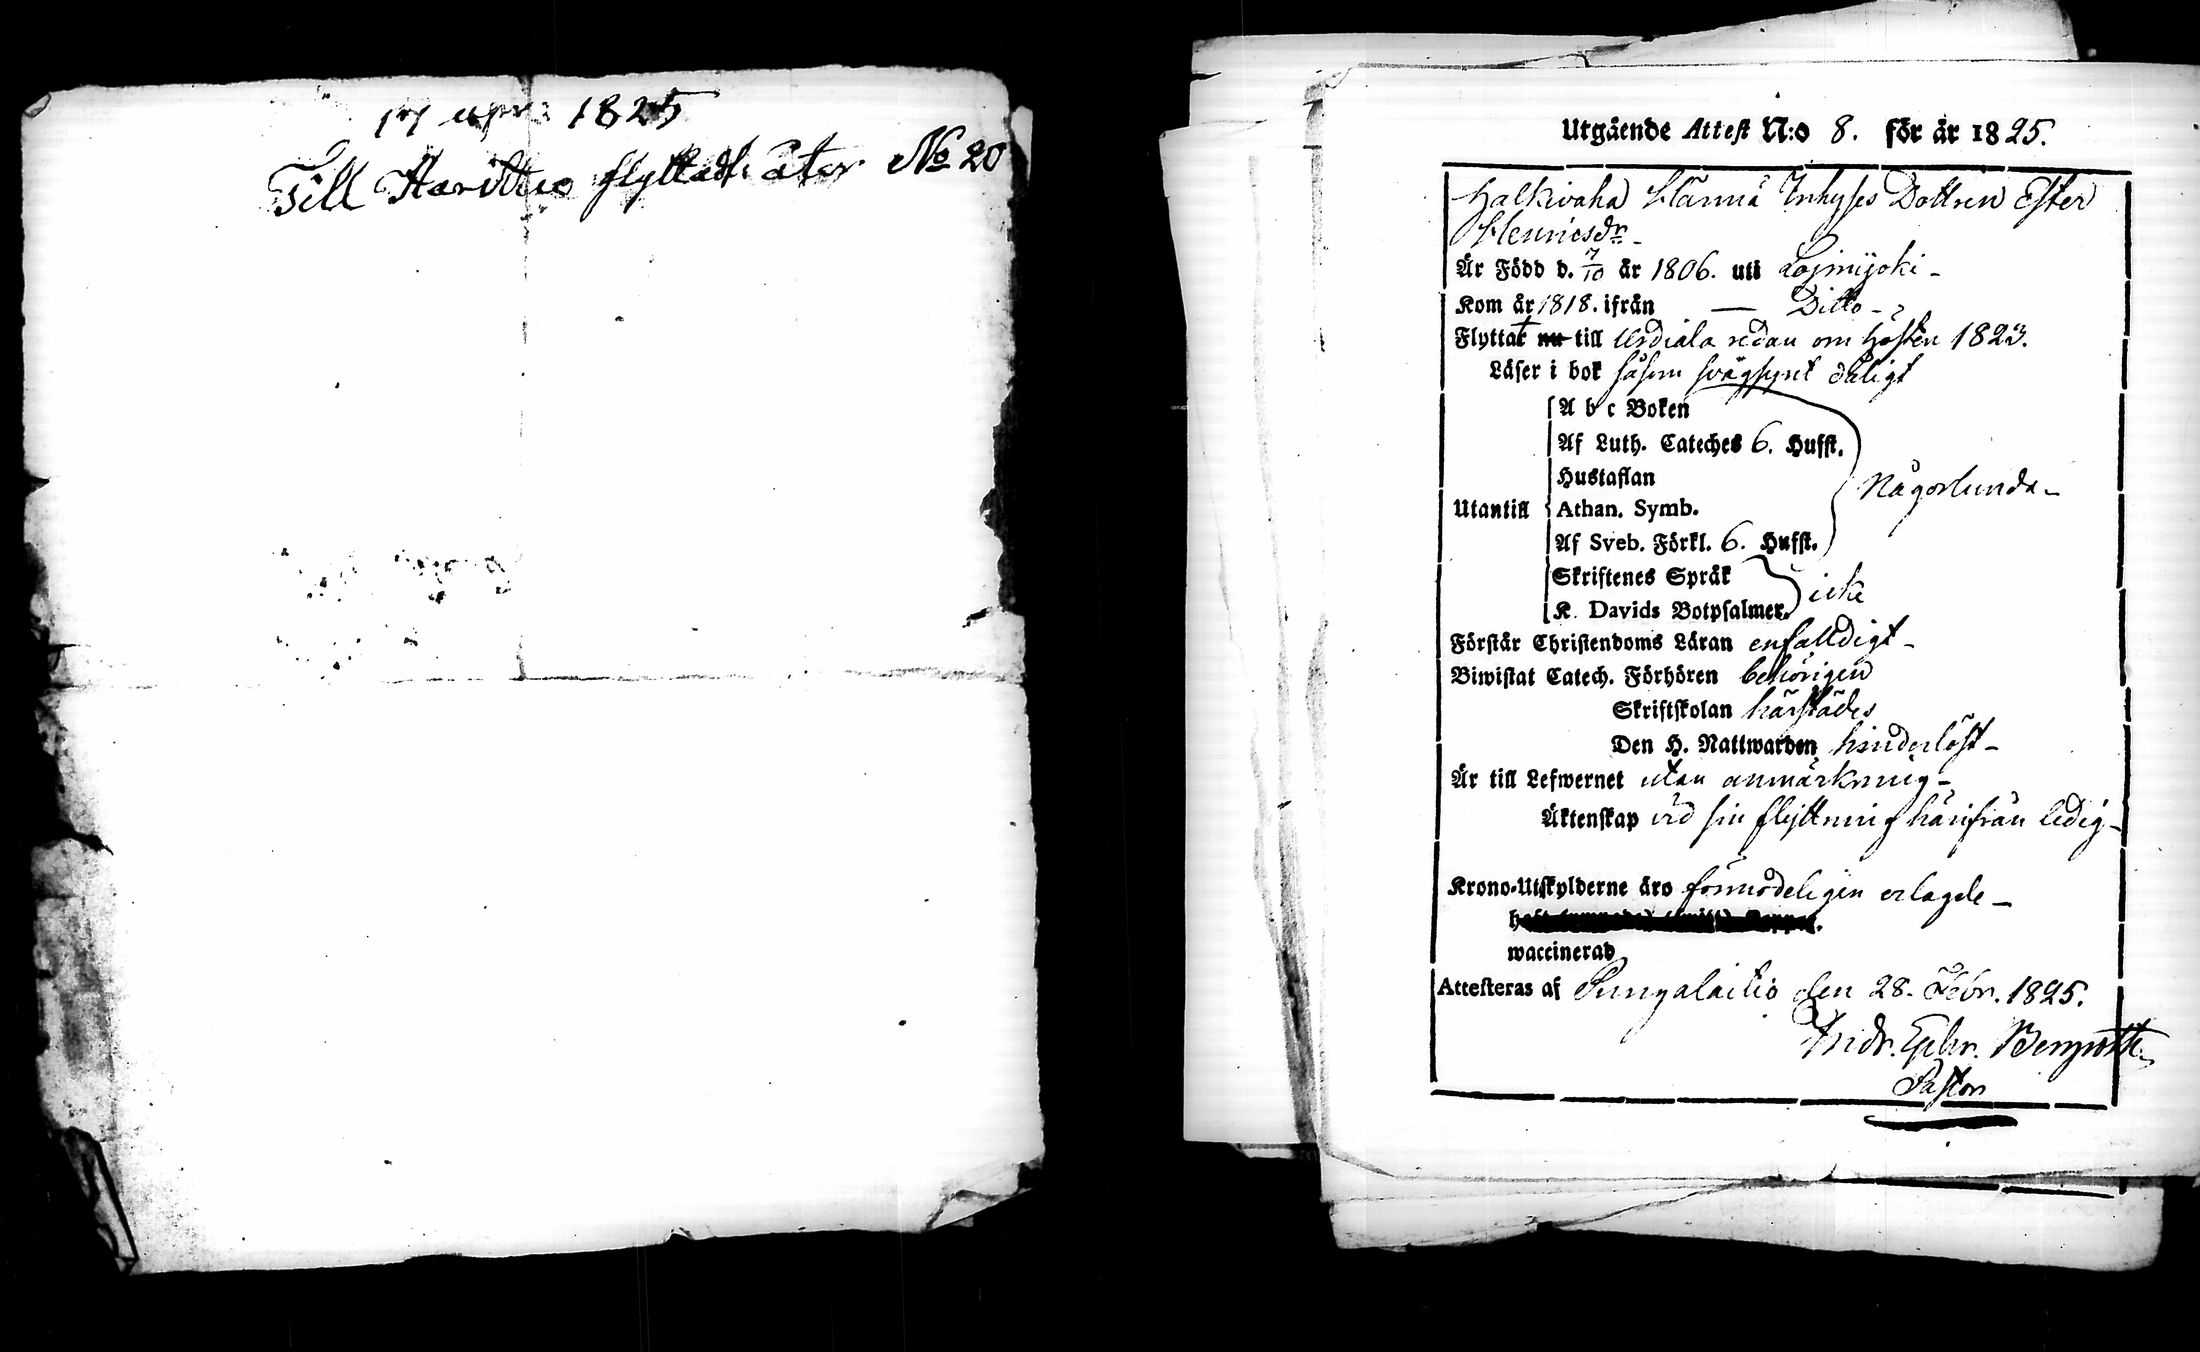 17 apr: 1825
Till flyttadt åter No 20
Utgående Attest N:o 8. för år 1825.
Halkivaha Hännä Inhyses Dottren Ester
Henricsdr
Är Född d. 7/10 år 1806. uti Loimijoki -
Kom år 1818. ifrån — Ditto -
Flyttat nu till Urdiala redan om hösten 1823.
Läser i bok såsom svagsynt dåligt
A b c Boken
Af Luth. Cateches 6. Hufst.
Hustaflan
Någorlunda -
Utantill Athan. Symb.
Af Sveb. Förkl. 6. Hufst.
Skriftenes Språk
icke
K. Davids Botpsalmer.
Förstår Christendoms Läran enfalldigt -
Biwistat Catech. Förhören behörigen
Skriftskolan härstädes
Den H. Nattwarden hinderlöst -
Är till Lefwernet utan anmärkning -
Äktenskap vid sin flyttning härifrån ledig -
Krono-Utskylderne äro förmodeligen erlagde -
waccinerad
Attesteras af Pungalaitio den 28. Febr. 1825.
Fridr. Ephr.
Pastor